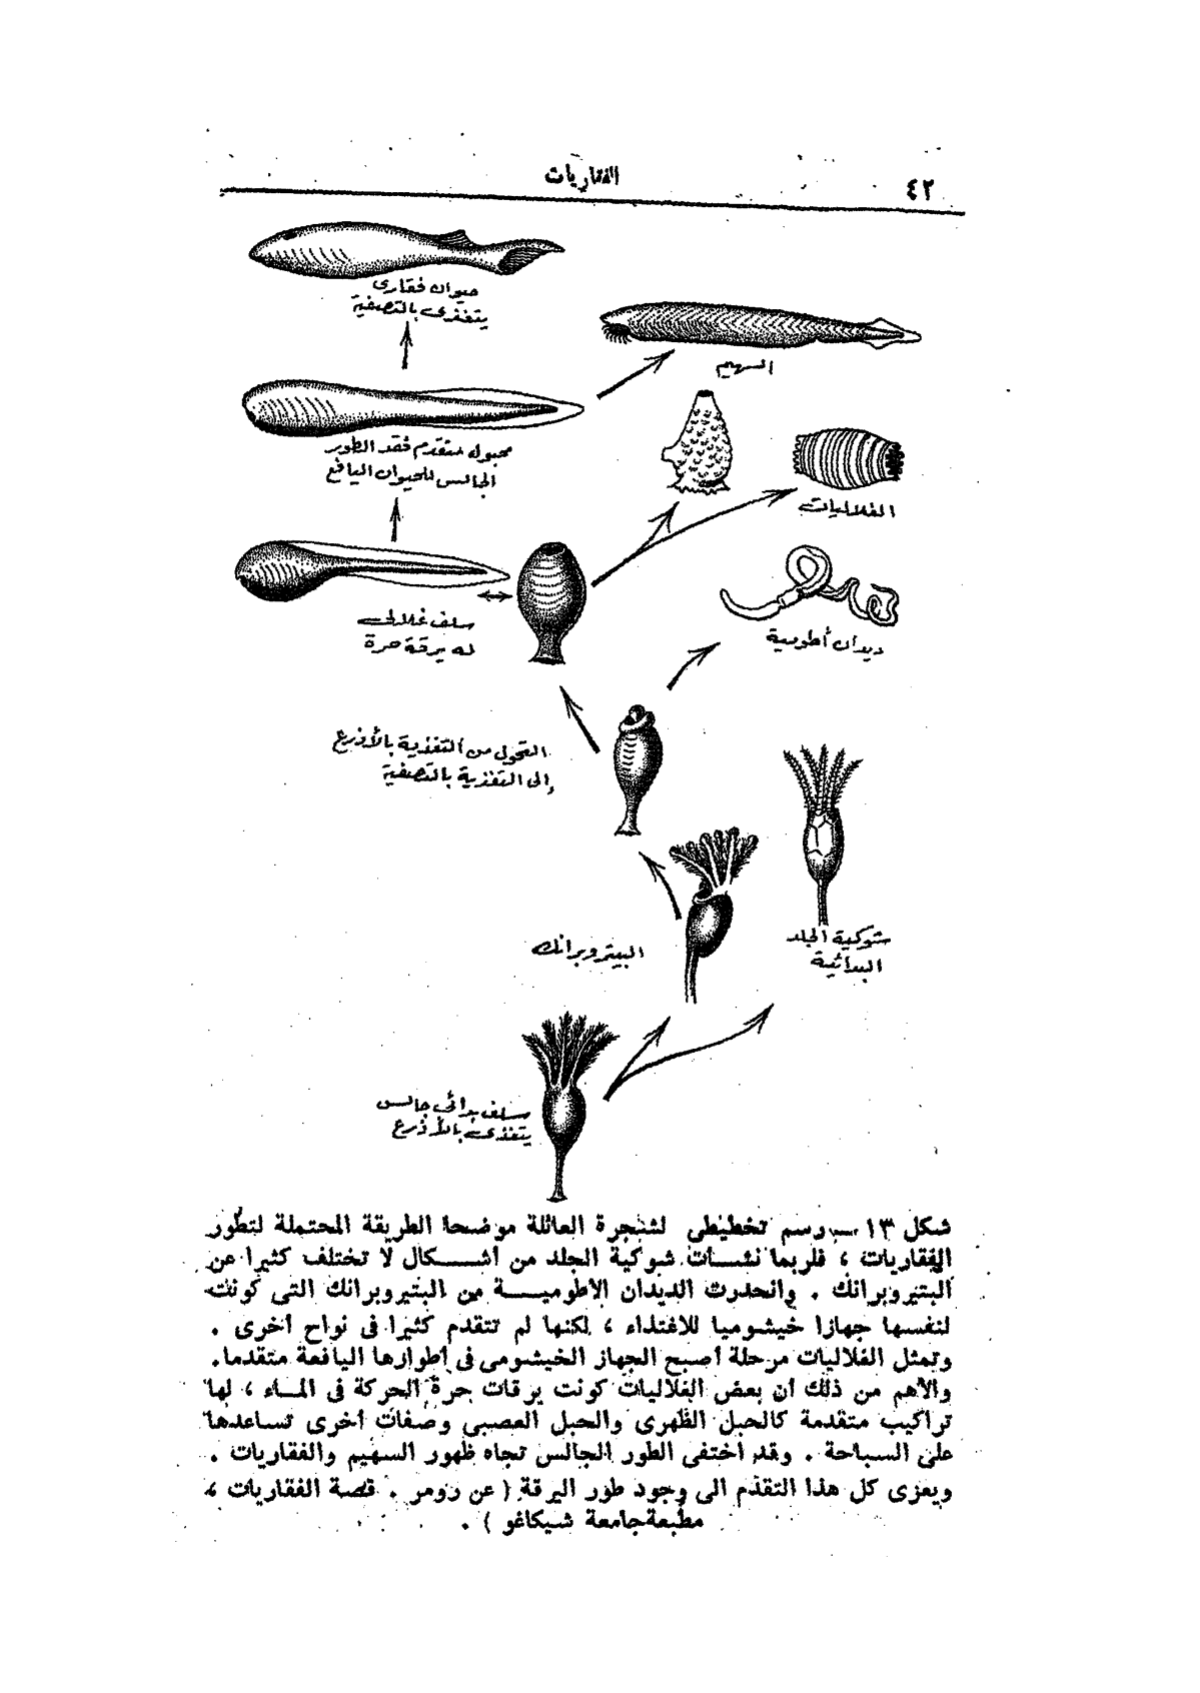 ٤٢
الفقاريات
حيوان فقارى
يتغذى بالتصفية
السهيم
حبلى متقدم فقد الطور
الجالس للحيوان اليافع
الغلاليات
سلف غلالى
له يرقة حرة
ديدان أطومية
التحول من التغذية بالأذرع
إلى التغذية بالتصفية
شوكية الجلد
البدائية
البيتروبرانك
سلف بدائى جالس
يتغذى بالأذرع
شكل ١٣ — رسم تخطيطى لشجرة العائلة موضحا الطريقة المحتملة لتطور
الفقاريات ، فلربما نشأت شوكية الجلد من أشكال لا تختلف كثيرا عن
البتيروبرانك . وانحدرت الديدان الاطومية من البتيروبرانك التى كونت
لنفسها جهازا خيشوميا للاغتذاء ، لكنها لم تتقدم كثيرا فى نواح أخرى .
وتمثل الغلاليات مرحلة أصبح الجهاز الخيشومى فى أطوارها اليافعة متقدما.
والأهم من ذلك أن بعض الغلاليات كونت يرقات حرة الحركة فى الماء ، لها
تراكيب متقدمة كالحبل الظهرى والحبل العصبى وصفات أخرى تساعدها
على السباحة . وقد اختفى الطور الجالس تجاه ظهور السهيم والفقاريات .
ويعزى كل هذا التقدم الى وجود طور اليرقة ( عن رومر . قصة الفقاريات ،
مطبعة جامعة شيكاغو ) .